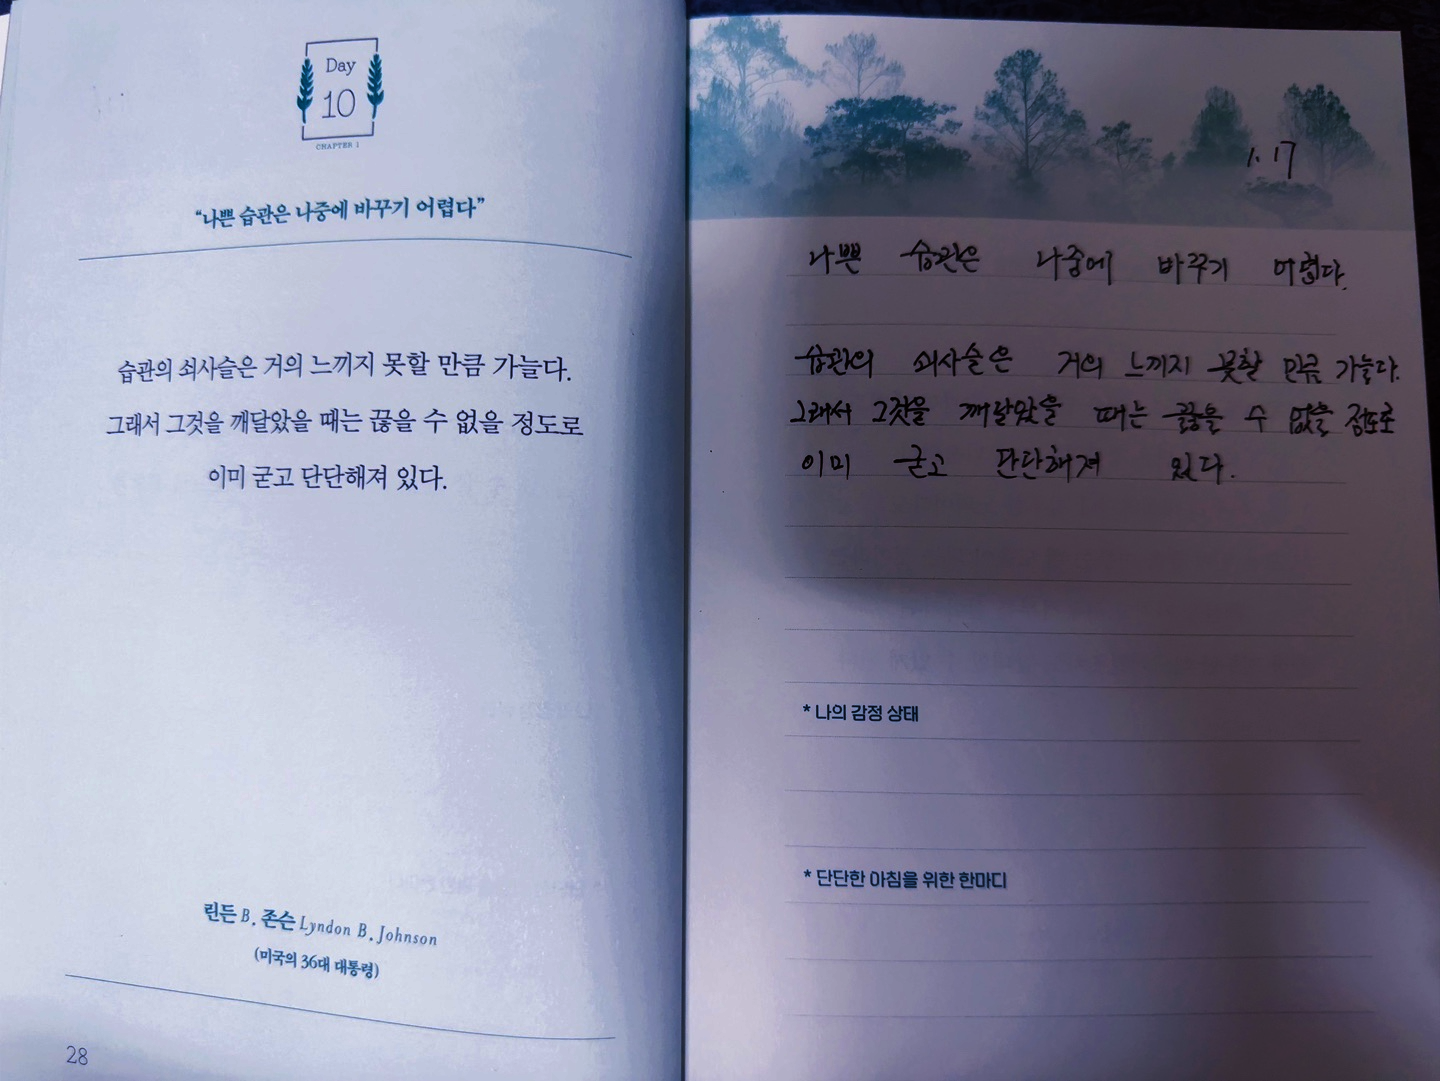 Day
10
CHAPTER 1
“나쁜 습관은 나중에 바꾸기 어렵다”
습관의 쇠사슬은 거의 느끼지 못할 만큼 가늘다.
그래서 그것을 깨달았을 때는 끊을 수 없을 정도로
이미 굳고 단단해져 있다.
린든 B. 존슨 Lyndon B. Johnson
(미국의 36대 대통령)
28
1. 17
나쁜 습관은 나중에 바꾸기 어렵다.
습관의 쇠사슬은 거의 느끼지 못할 만큼 가늘다.
그래서 그것을 깨달았을 때는 끊을 수 없을 정도로
이미 굳고 단단해져 있다.
* 나의 감정 상태
* 단단한 아침을 위한 한마디